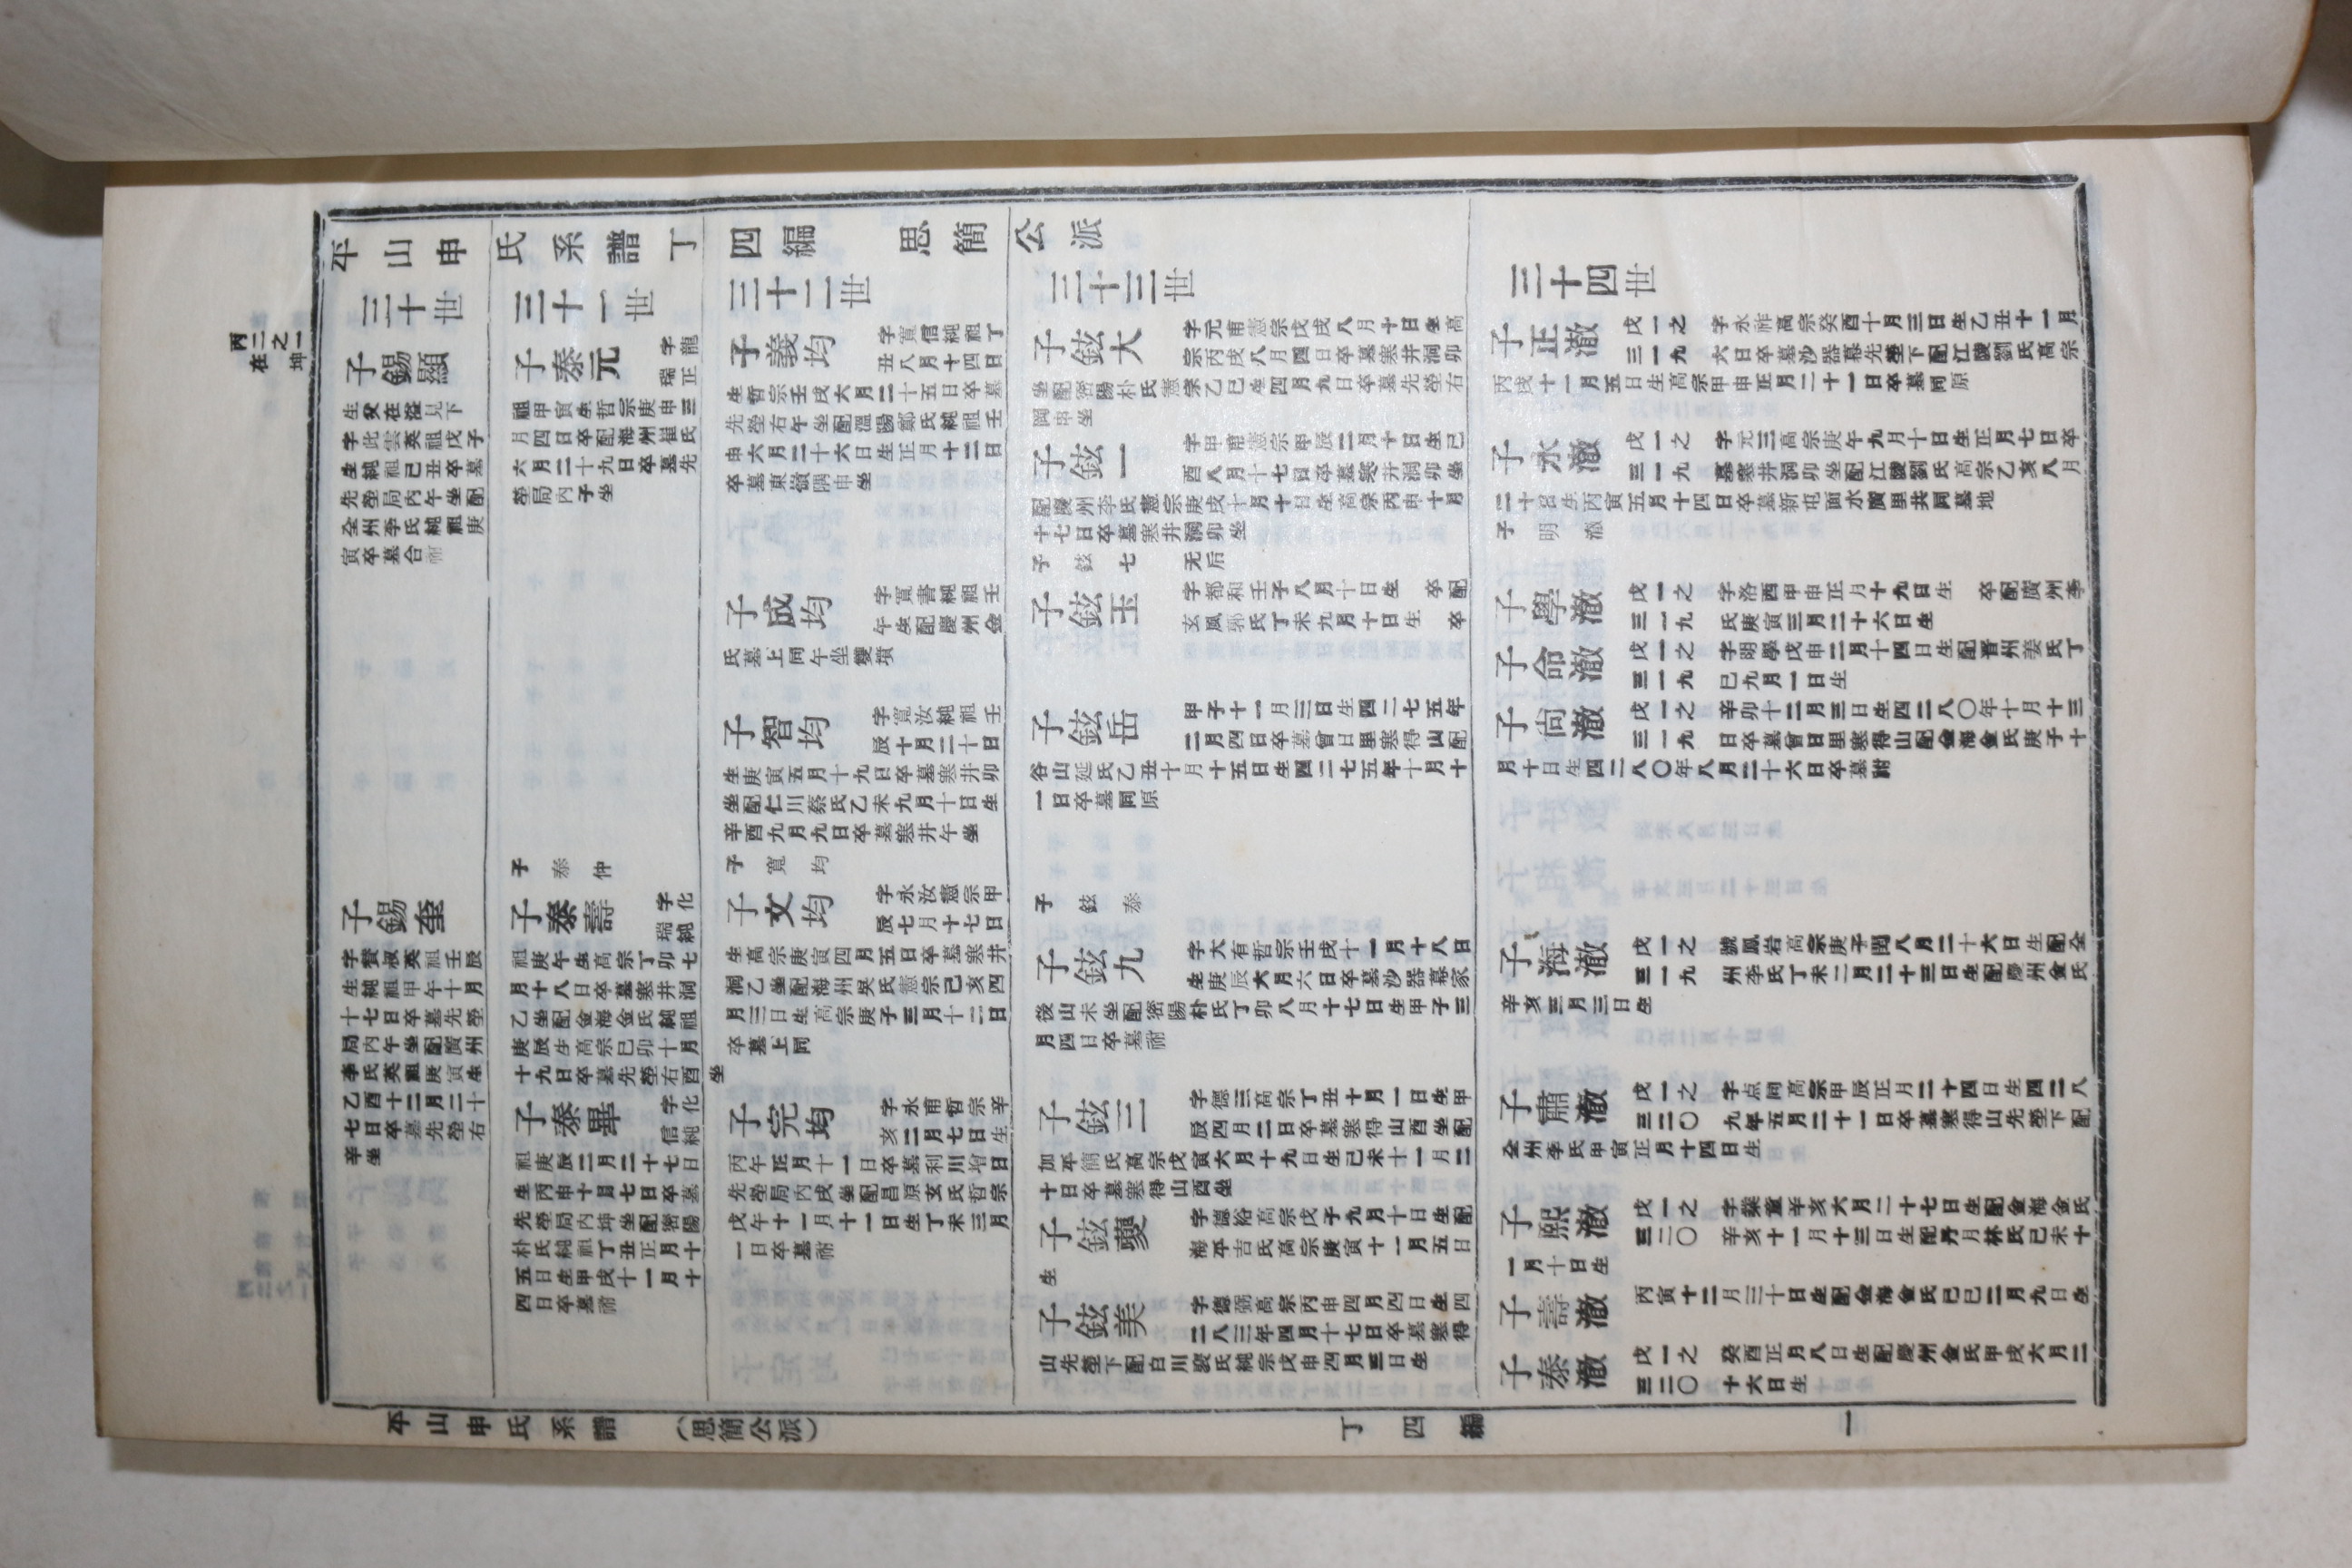 丙二之一
在坤
平山申氏系譜丁四編 思簡公派
三十世
子錫顯
生父在溢見下
字此雲英祖戊子
生純祖己丑卒墓
先塋局內午坐配
全州李氏純祖庚
寅卒墓合祔
子錫奎
字賛叔英祖壬辰
生純祖甲午十月
十七日卒墓先塋
局內午坐配廣州
李氏英祖庚寅生
乙酉十二月二十
七日卒墓先塋右
辛坐
三十一世
子泰元
字龍
瑞正
祖甲寅生哲宗庚申三
月四日卒配海州崔氏
六月二十九日卒墓先
塋局內子坐
子泰仲
子泰壽
字化
瑞純
祖庚午生高宗丁卯七
月十八日卒墓寒井洞
乙坐配金海金氏純祖
庚辰生高宗己卯十月
十九日卒墓先塋右酉坐
子泰畢
字化
信純
祖庚辰二月二十七日
生丙申十月七日卒墓
先塋局內坤坐配密陽
朴氏純祖丁丑正月十
五日生甲戌十一月十
四日卒墓祔
三十二世
子義均
字寬信純祖丁
丑八月十四日
生哲宗壬戌六月二十五日卒墓
先塋右午坐配溫陽鄭氏純祖壬
申六月二十六日生正月十二日
卒墓東嶺隅申坐
子成均
字寬書純祖壬
午生配慶州金
氏墓上同午坐雙墳
子智均
字寬汝純祖壬
辰十月二十日
生庚寅五月十九日卒墓寒井卯
坐配仁川蔡氏乙未九月十日生
辛酉九月九日卒墓寒井午坐
子寬均
子文均
字永汝憲宗甲
辰七月十七日
生高宗庚寅四月五日卒墓寒井
洞乙坐配海州吳氏憲宗己亥四
月三日生高宗庚子三月十二日
卒墓上同
子完均
字永甫哲宗辛
亥二月七日生
丙午正月十一日卒墓利川增日
先塋局內戌坐配昌原玄氏哲宗
戊午十一月十一日生丁未三月
一日卒墓祔
三十三世
子鉉大
字元甫憲宗戊戌八月十日生高
宗丙戌八月四日卒墓寒井洞卯
坐配密陽朴氏憲宗乙巳生四月九日卒墓先塋右
岡申坐
子鉉一
字甲甫憲宗甲辰二月十日生己
酉八月十七日卒墓寒井洞卯坐
配慶州李氏憲宗庚戌十月十日生高宗丙申十月
十七日卒墓寒井洞卯坐
子鉉七 无后
子鉉玉
字都和壬子八月十日生 卒配
玄風郭氏丁未九月十日生 卒
子鉉岳
甲子十一月三日生四二七五年
二月四日卒墓曾日里寒得山配
谷山延氏乙丑十月十五日生四二七五年十月十
一日卒墓同原
子鉉泰
子鉉九
字大有哲宗壬戌十一月十八日
生庚辰六月六日卒墓沙器幕家
後山未坐配密陽朴氏丁卯八月十七日生甲子三
月四日卒墓祔
子鉉三
字德三高宗丁丑十月一日生甲
辰四月二日卒墓寒得山酉坐配
加平簡氏高宗戊寅六月十九日生己未十一月二
十日卒墓寒得山酉坐
子鉉夔
字德裕高宗戊子九月十日生配
海平吉氏高宗庚寅十一月五日
生
子鉉美
字德弼高宗丙申四月四日生四
二八三年四月十七日卒墓寒得
山先塋下配白川裵氏純宗戊申四月三日生
三十四世
子正澈
戊一之
三一九
字永祚高宗癸酉十月三日生乙丑十一月
六日卒墓沙器幕先塋下配江陵劉氏高宗
丙戌十一月五日生高宗甲申正月二十一日卒墓同原
子永澈
戊一之
三一九
字元三高宗庚午九月十日生正月七日卒
墓寒井洞卯坐配江陵劉氏高宗乙亥八月
二十日生丙寅五月十四日卒墓新屯面水廣里共同墓地
子明澈
子學澈
戊一之
三一九
字洛西甲申正月十九日生 卒配廣州李
氏庚寅三月二十六日生
子命澈
戊一之
三一九
字明學戊申二月十四日生配晋州姜氏丁
巳九月一日生
子尙澈
戊一之
三一九
辛卯十二月三日生四二八〇年十月十三
日卒墓曾日里寒得山配金海金氏庚子十
月十日生四二八〇年八月二十六日卒墓祔
子海澈
戊一之
三一九
號鳳岩高宗庚子閏八月二十六日生配全
州李氏丁未二月二十三日生配慶州金氏
辛亥三月三日生
子肅澈
戊一之
三二〇
字点同高宗甲辰正月二十四日生四二八
九年五月二十一日卒墓寒得山先塋下配
全州李氏甲寅正月十四日生
子熙澈
戊一之
三二〇
字業童辛亥六月二十七日生配金海金氏
辛亥十一月十三日生配丹月林氏己未十
一月十日生
子壽澈
丙寅十二月三十日生配金海金氏己巳二月九日生
子泰澈
戊一之
三二〇
癸酉正月八日生配慶州金氏甲戌六月二
十六日生
平山申氏系譜 （思簡公派） 丁四編 一